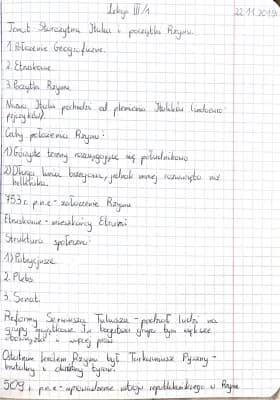 Lekcja III/1 22.11.2019
Temat: Starożytna Italia i początki Rzymu.
1. Położenie Geograficzne.
2. Etruskowie.
3. Początki Rzymu
Nazwa Italia pochodzi od plemienia Italików (indoeuro-
pejczyków)
Cechy położenia Rzymu:
1) Górzyste tereny rozciągające się południkowo
2) Długa linia brzegowa, jednak mniej rozwinięta niż
helleńska.
753 r. p.n.e - założenie Rzymu
Etruskowie - mieszkańcy Etrurii
Struktura społeczna:
1) Patrycjusze
2. Plebs
3. Senat.
Reformy Serwiusza Tuliusza - podział ludzi na
grupy majątkowe. Im bogatsza grupa tym większe
obowiązki i więcej praw
Ostatnim królem Rzymu był Tarkwiniusz Pyszny -
brutalny i okrutny tyran.
509 r. p.n.e - wprowadzenie ustroju republikańskiego w Rzymie